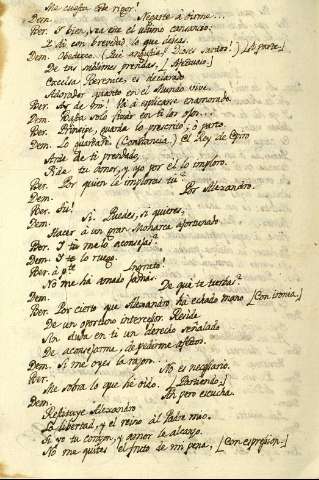 Me cuesta este rigor!
Dem. Negaste á oirme...
Ber. I bien, sea este el ultimo cansancio:
I di con brevedad lo que deseas.
Dem. Obedezco. (Qué angustia! Dioses santos!) [Ap.arte.]
De tus sublimes prendas, [Afectuoso.]
Excelsa Berenice, es declarado
Adorador quanto en el Mundo vive.
Ber. Ay de mi! Vá á esplicarse enamorado.
Dem. Basta solo fixar en ti los ojos...
Ber. Principe, guarda lo prescrito; ó parto.
Dem. Lo guardaré. (Constancia.) El Rey de Epiro
Arde de ti prendado;
Pide tu amor, y yo por él lo imploro.
Ber. Por quien lo imploras tú?
Dem. Por Alexandro.
Ber. Tú!
Dem. Sí. Puedes, si quieres,
Hacer á un gran Monarca afortunado.
Ber. I tú me lo aconsejas?
Dem. I te lo ruego.
Ber. á pte. Ingrato!
No me ha amado jamas.
Dem. De qué te turbas?
Ber. Por cierto que Alexandro há echado mano [Con ironia.]
De un oportuno intercesor. Reside
Sin duda en ti un derecho señalado
De aconsejarme, de pedirme afectos.
Dem. Si me oyes la razon.
Ber. No es necesario.
Me sobra lo que he oido. [Partiendo.]
Dem. Ah pero escucha.
Restituye Alexandro
La libertad, y el reino al Padre mio.
Si yo tu compn, y amor le alcanzo.
No me quites el fruto de mi pena, [Con espresion.]